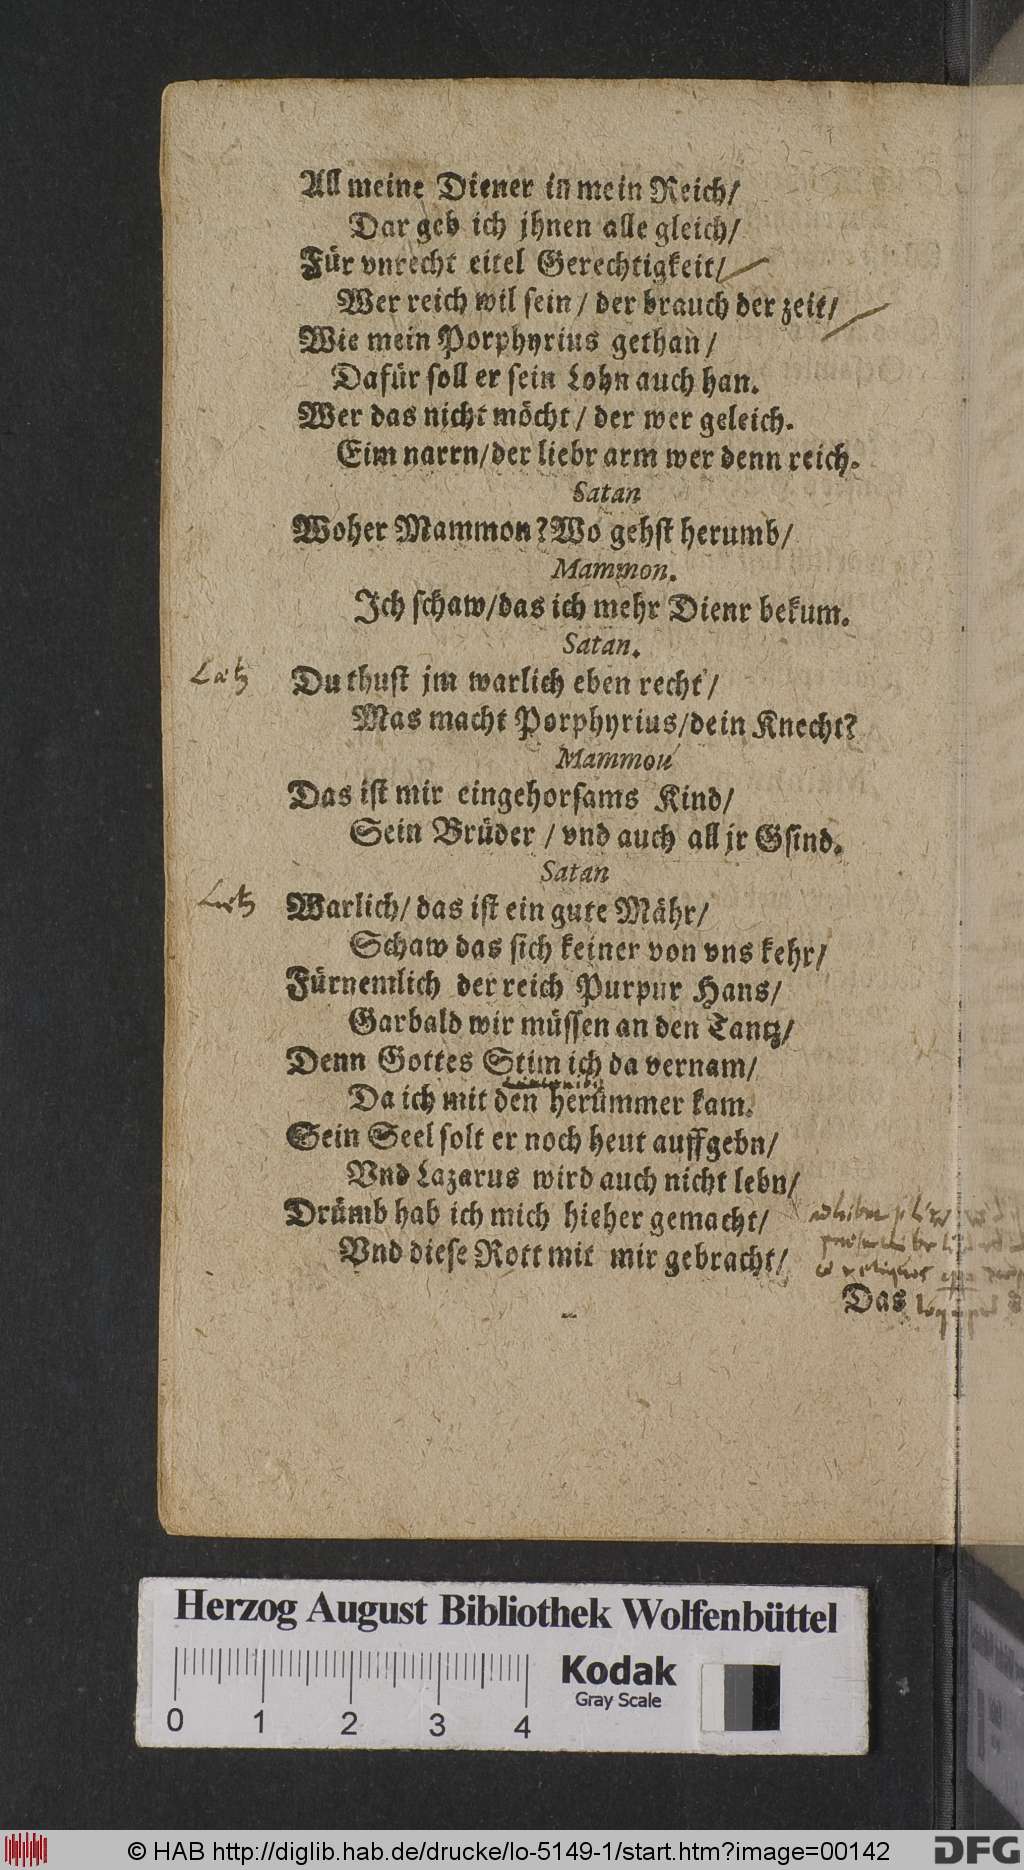 All meine Diener in mein Reich/
Dar geb ich jhnen alle gleich/
Für vnrecht eitel Gerechtigkeit/
Wer reich wil sein / der brauch der zeit/
Wie mein Porphyrius gethan /
Dafür soll er sein Lohn auch han.
Wer das nicht möcht / der wer geleich.
Eim narrn/der liebr arm wer denn reich.
Satan
Woher Mammon? Wo gehst herumb/
Mammon.
Ich schaw/das ich mehr Dienr bekum.
Satan.
Du thust jm warlich eben recht/
Mas macht Porphyrius/dein Knecht?
Mammou
Das ist mir eingehorsams Kind/
Sein Brüder / vnd auch all jr Gsind.
Satan
Warlich/ das ist ein gute Mähr/
Schaw das sich keiner von vns kehr/
Fürnemlich der reich Purpur Hans/
Garbald wir müssen an den Tantz/
Denn Gottes Stim ich da vernam/
Da ich mit den herümmer kam.
Sein Seel solt er noch heut auffgebn/
Vnd Lazarus wird auch nicht lebn/
Drümb hab ich mich hieher gemacht/
Vnd diese Rott mit mir gebracht/
Das
Herzog August Bibliothek Wolfenbüttel
Kodak
Gray Scale
0 1 2 3 4
© HAB http://diglib.hab.de/drucke/lo-5149-1/start.htm?image=00142
DFG